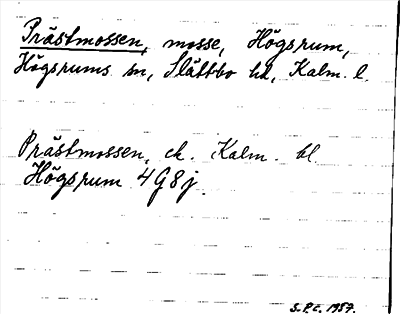 Prästmossen, mosse, Högsrum,
Högsrums sn, Slättbo hd, Kalm. l.
Prästmossen, ek. Kalm. bl.
Högsrum 4G8j.
S.P.C. 1957.